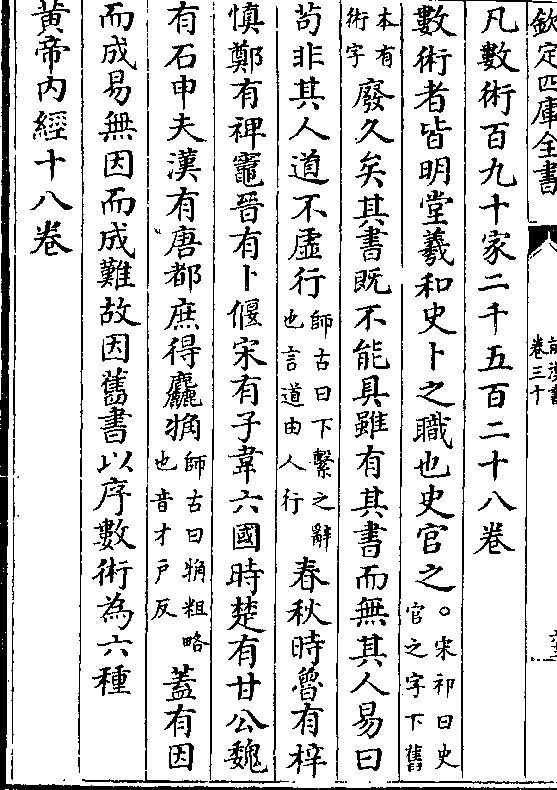 欽定四庫全書
卷三十
凡數術百九十家二千五百二十八卷
數術者皆明堂羲和史卜之職也史官之。宋祁曰史官之字下舊
本有術字廢久矣其書既不能具雖有其書而無其人易曰
苟非其人道不虛行師古曰下繫之辭也言道由人行春秋時魯有梓
慎鄭有裨竈晉有卜偃宋有子韋六國時楚有甘公魏
有石申夫漢有唐都庶得麤觕師古曰觕粗略也音才戸反蓋有因
而成易無因而成難故因舊書以序數術為六種
黄帝内經十八卷